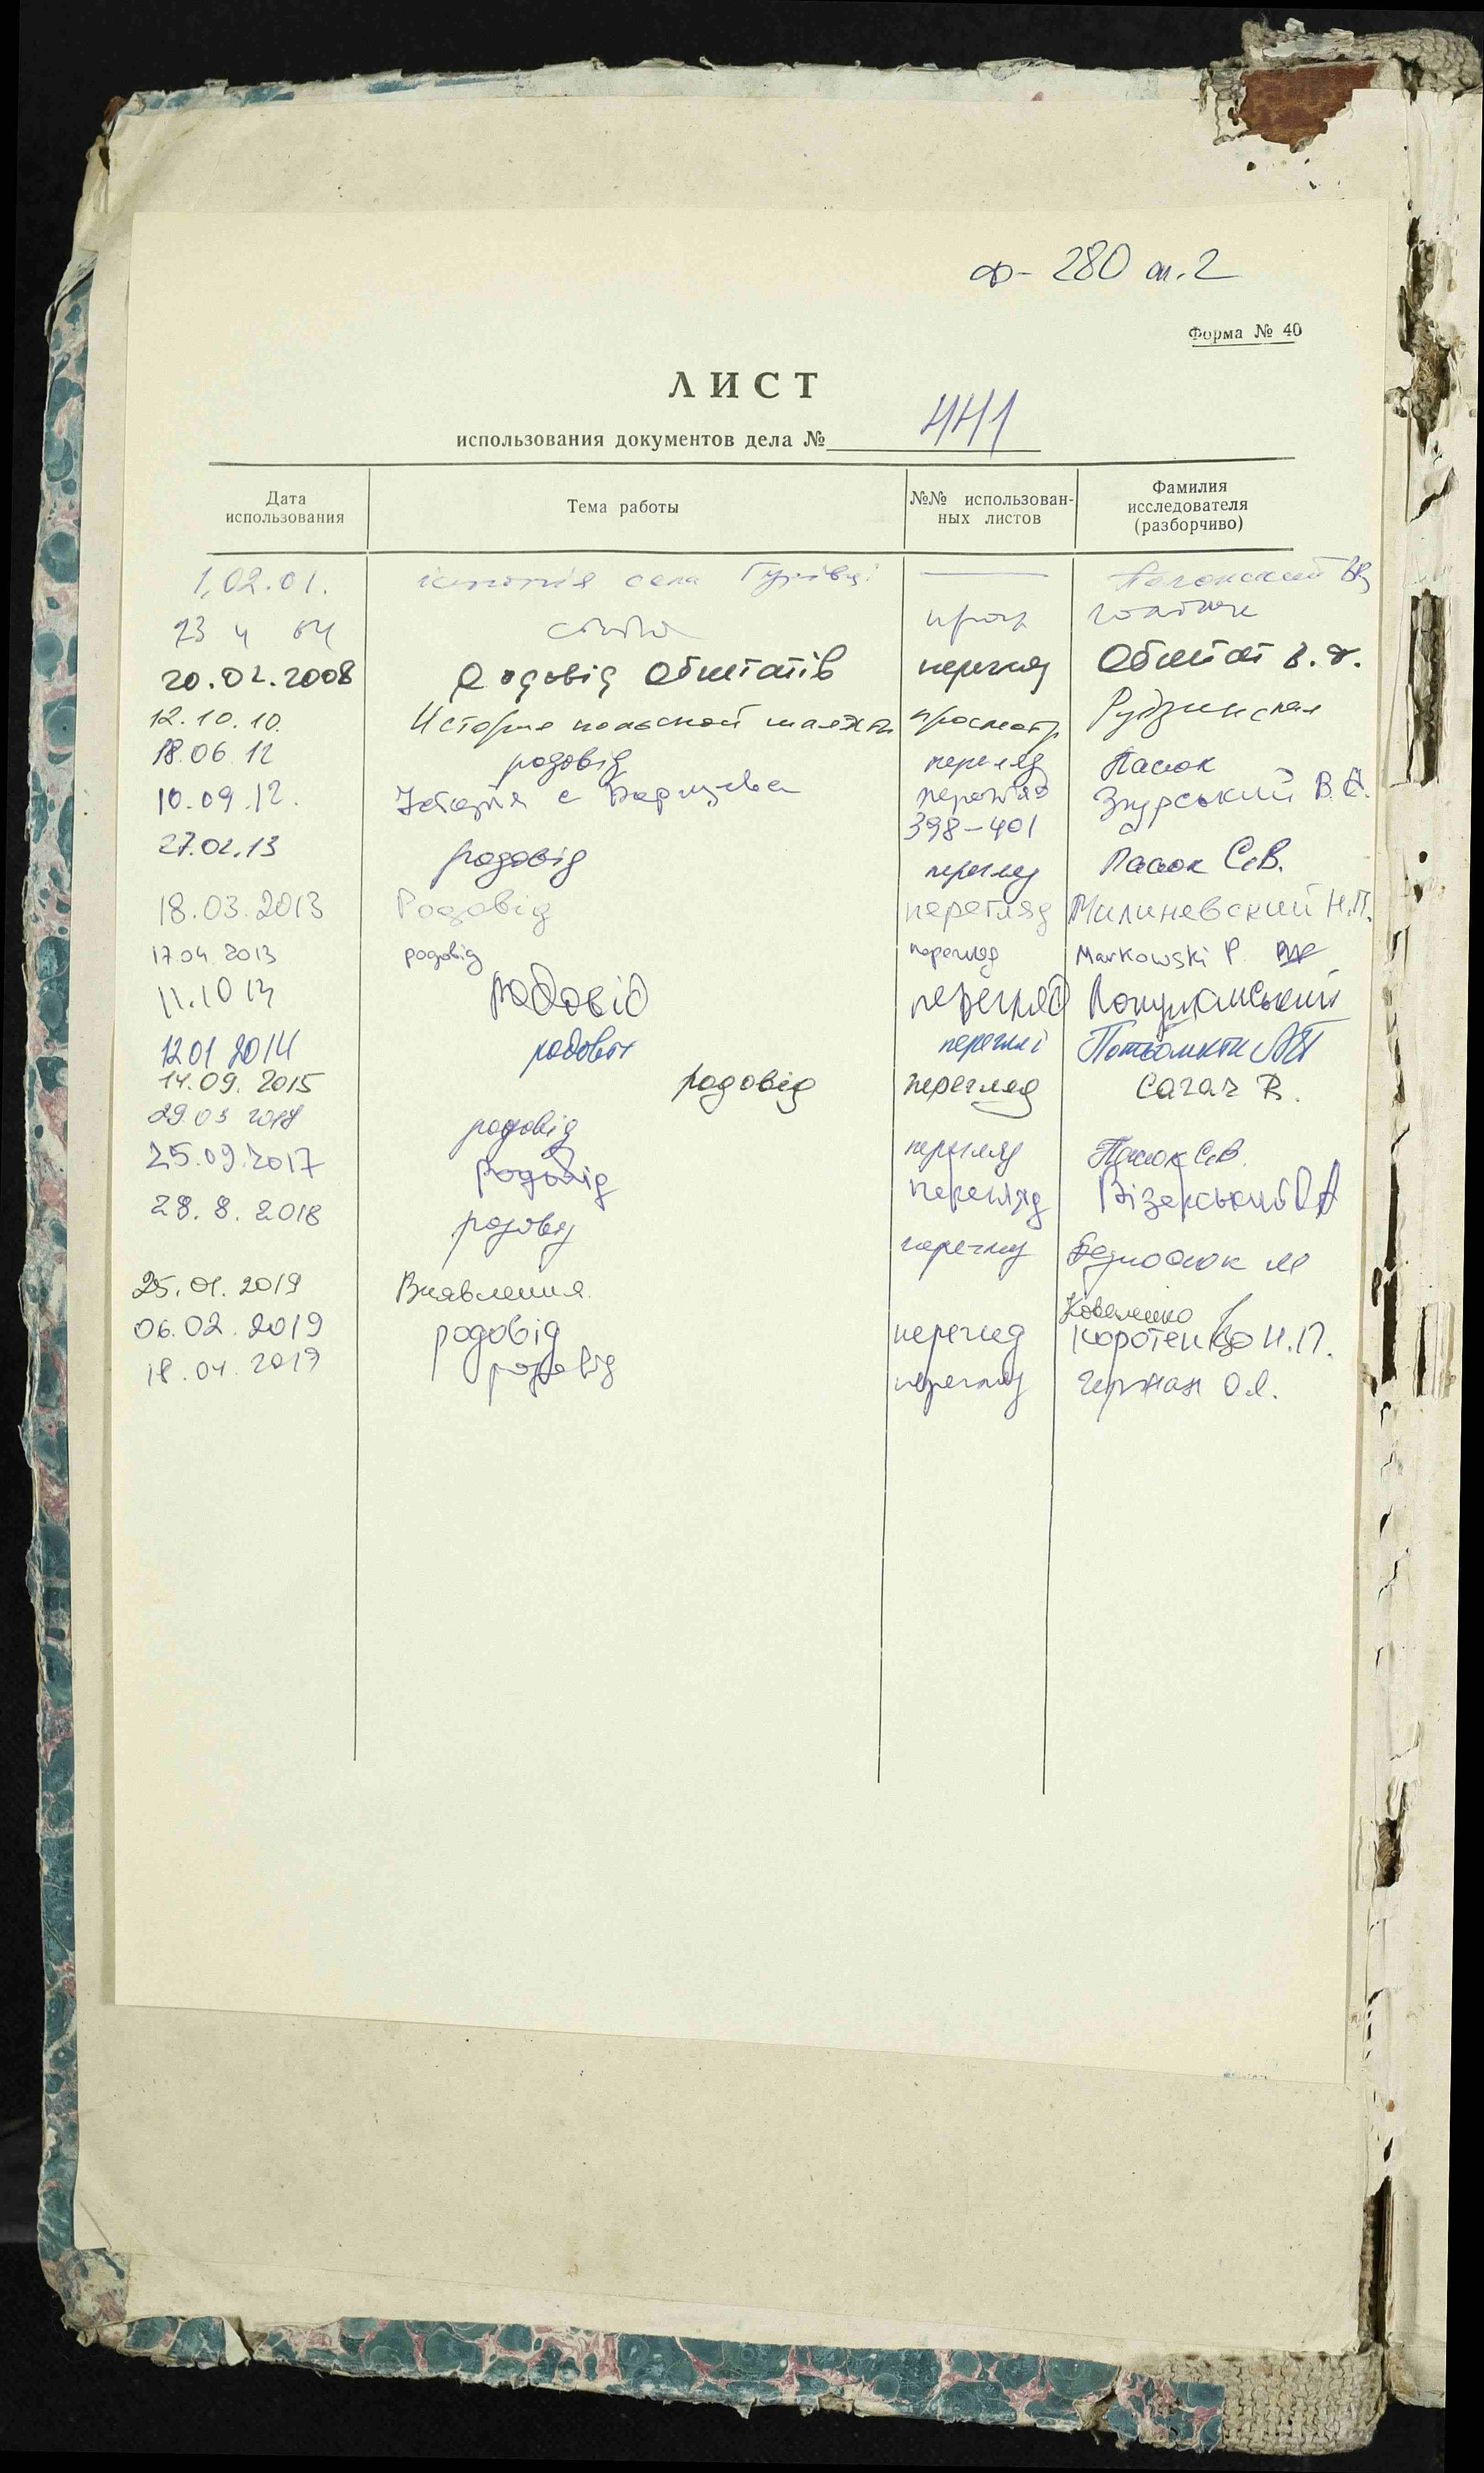 ф- 280 оп. 2
Форма № 40
ЛИСТ
использования документов дела № 441
Дата использования Тема работы №№ использован-ных листов Фамилия исследователя (разборчиво)
1.02.01. історія села —
23 4 04
20.02.2008 Родовід перегляд
12.10.10. История польской шляхты просмотр Рудзинская
18.06 12 родовід перегляд Пасюк
10.09.12. Історія с перегляд В.
398-401
27.02.13 родовід перегляд Пасюк С.В.
18.03.2013 Родовід перегляд Милиневский Н.П.
17.04 2013 родовід перегляд Markowski P.
11.10 13 родовід перегляд
12 01 2014 родовід
14.09. 2015 родовід перегляд Сагач В.
29.03 родовід перегляд Пасюк С.В.
25.09.2017 родовід перегляд
28. 8. 2018 родовід перегляд
25.01. 2019 Виявлення. Коваленко
06.02.2019 родовід перегляд Коротенко Н.П.
18.04.2019 родовід перегляд